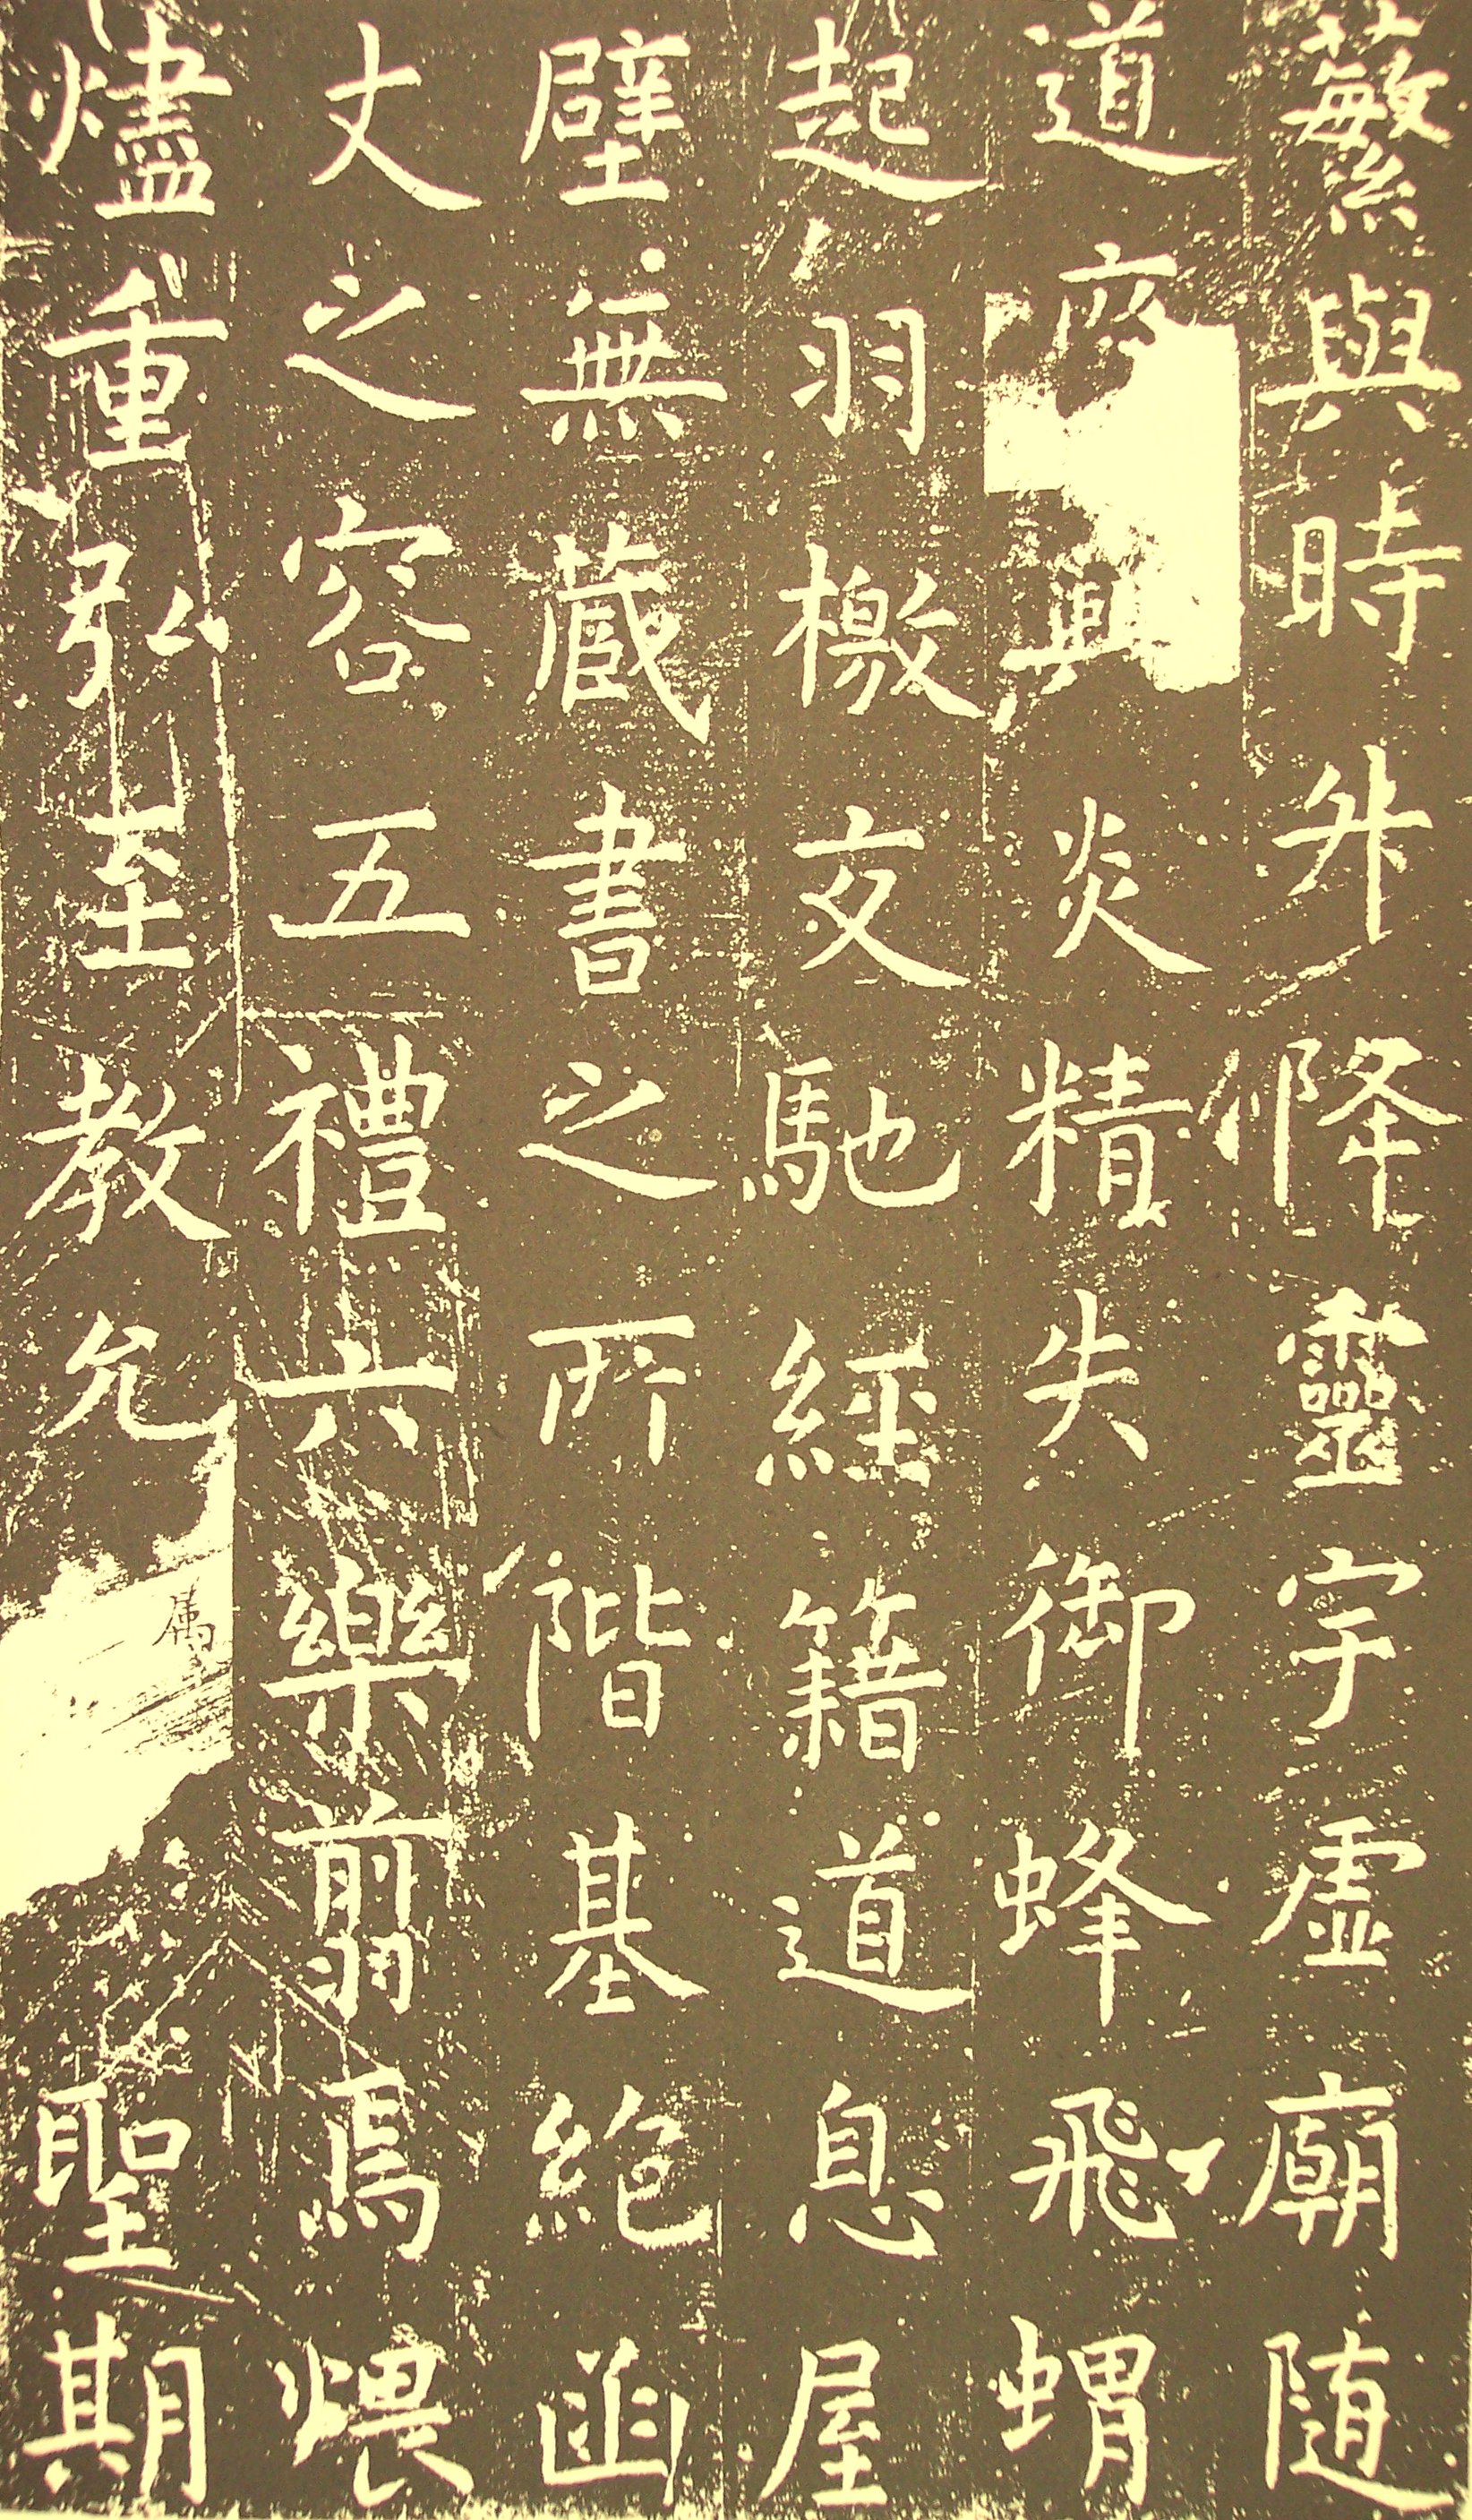 蘩與時升降靈宇虛廟隨
道齊興炎精失御蜂飛蝟
起羽檄交馳經籍道息屋
壁無藏書之所階基絕函
丈之容五禮六樂翦焉煨
燼重弘至教允屬聖期